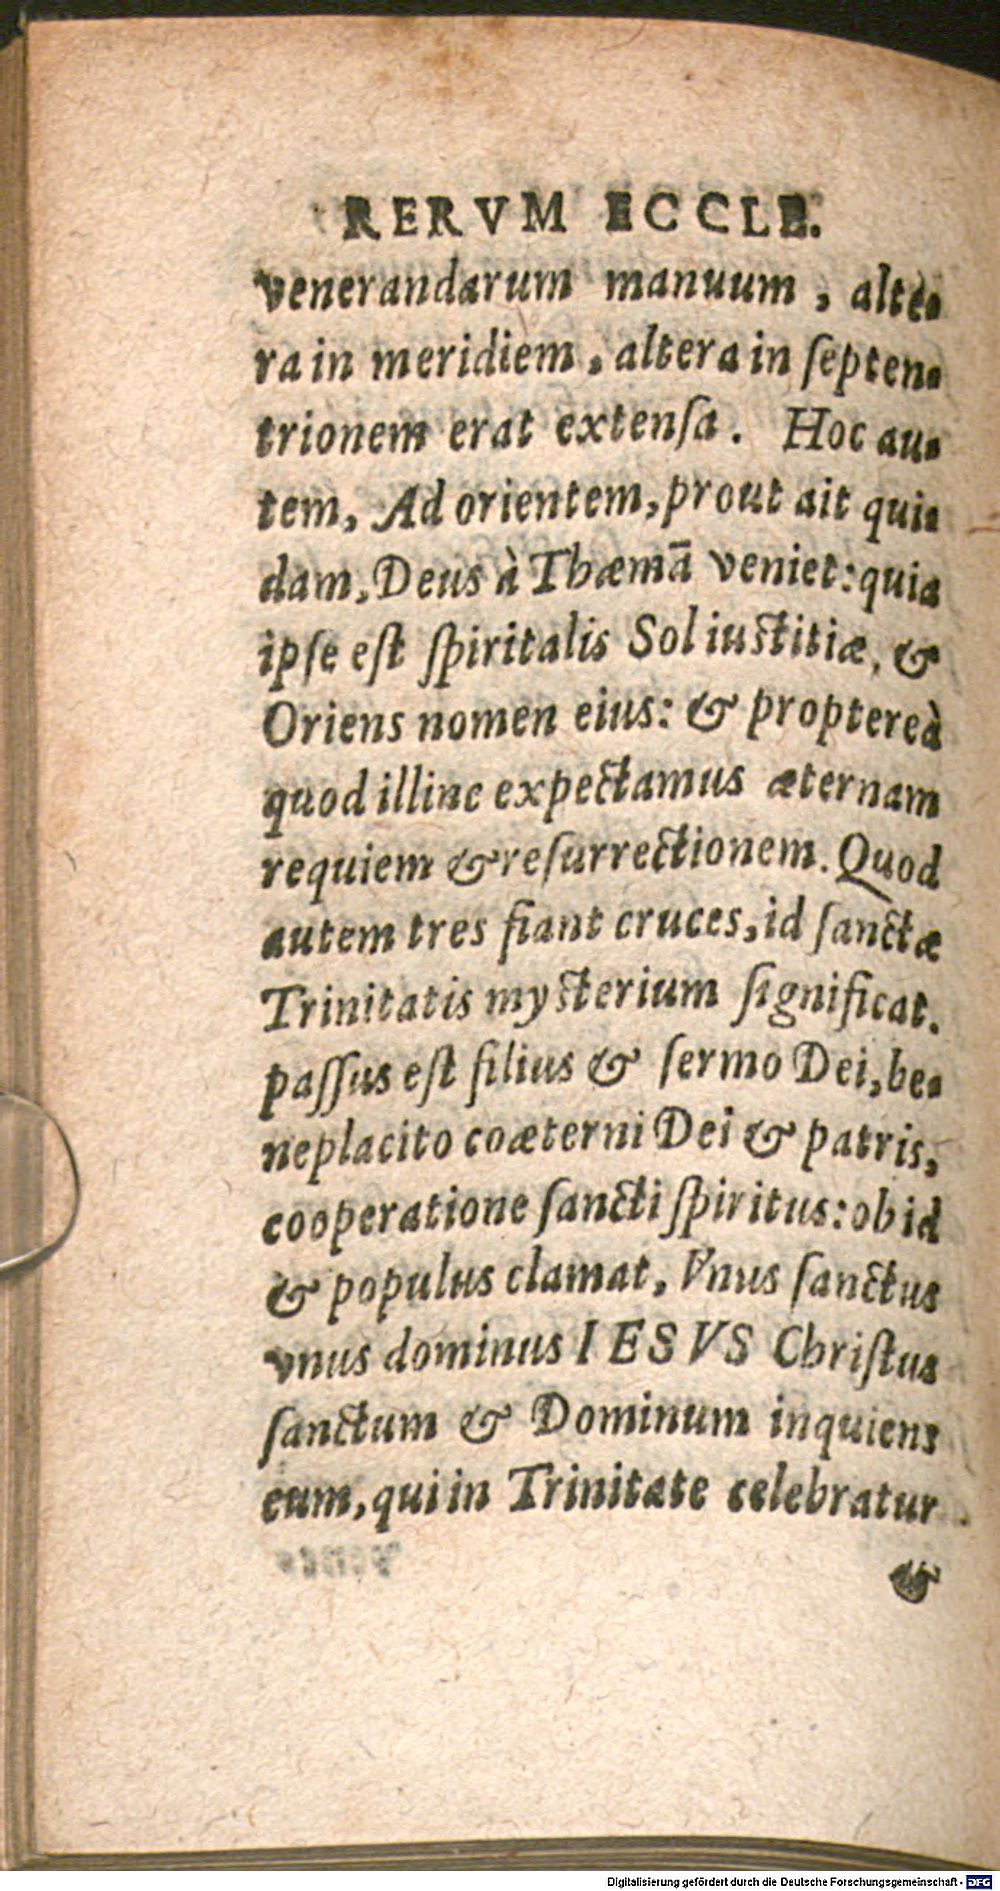 RERVM ECCLE.
venerandarum manuum, alte-
ra in meridiem, altera in ſepten-
trionem erat extenſa. Hoc au-
tem, Ad orientem, prout ait qui-
dam, Deus à Thæmā veniet: quia
ipſe eſt ſpiritalis Sol iuſtitiæ, &
Oriens nomen eius: & propterеà
quod illinc expectamus æternam
requiem & reſurrectionem. Quod
autem tres fiant cruces, id ſanctæ
Trinitatis myſterium ſignificat.
paſſus eſt filius & ſermo Dei, be-
neplacito coæterni Dei & patris,
cooperatione ſancti ſpiritus: ob id
& populus clamat, Vnus ſanctus
vnus dominus IESVS Chriſtus
ſanctum & Dominum inquiens
eum, qui in Trinitate celebratur.
&
Digitalisierung gefördert durch die Deutsche Forschungsgemeinschaft - DFG